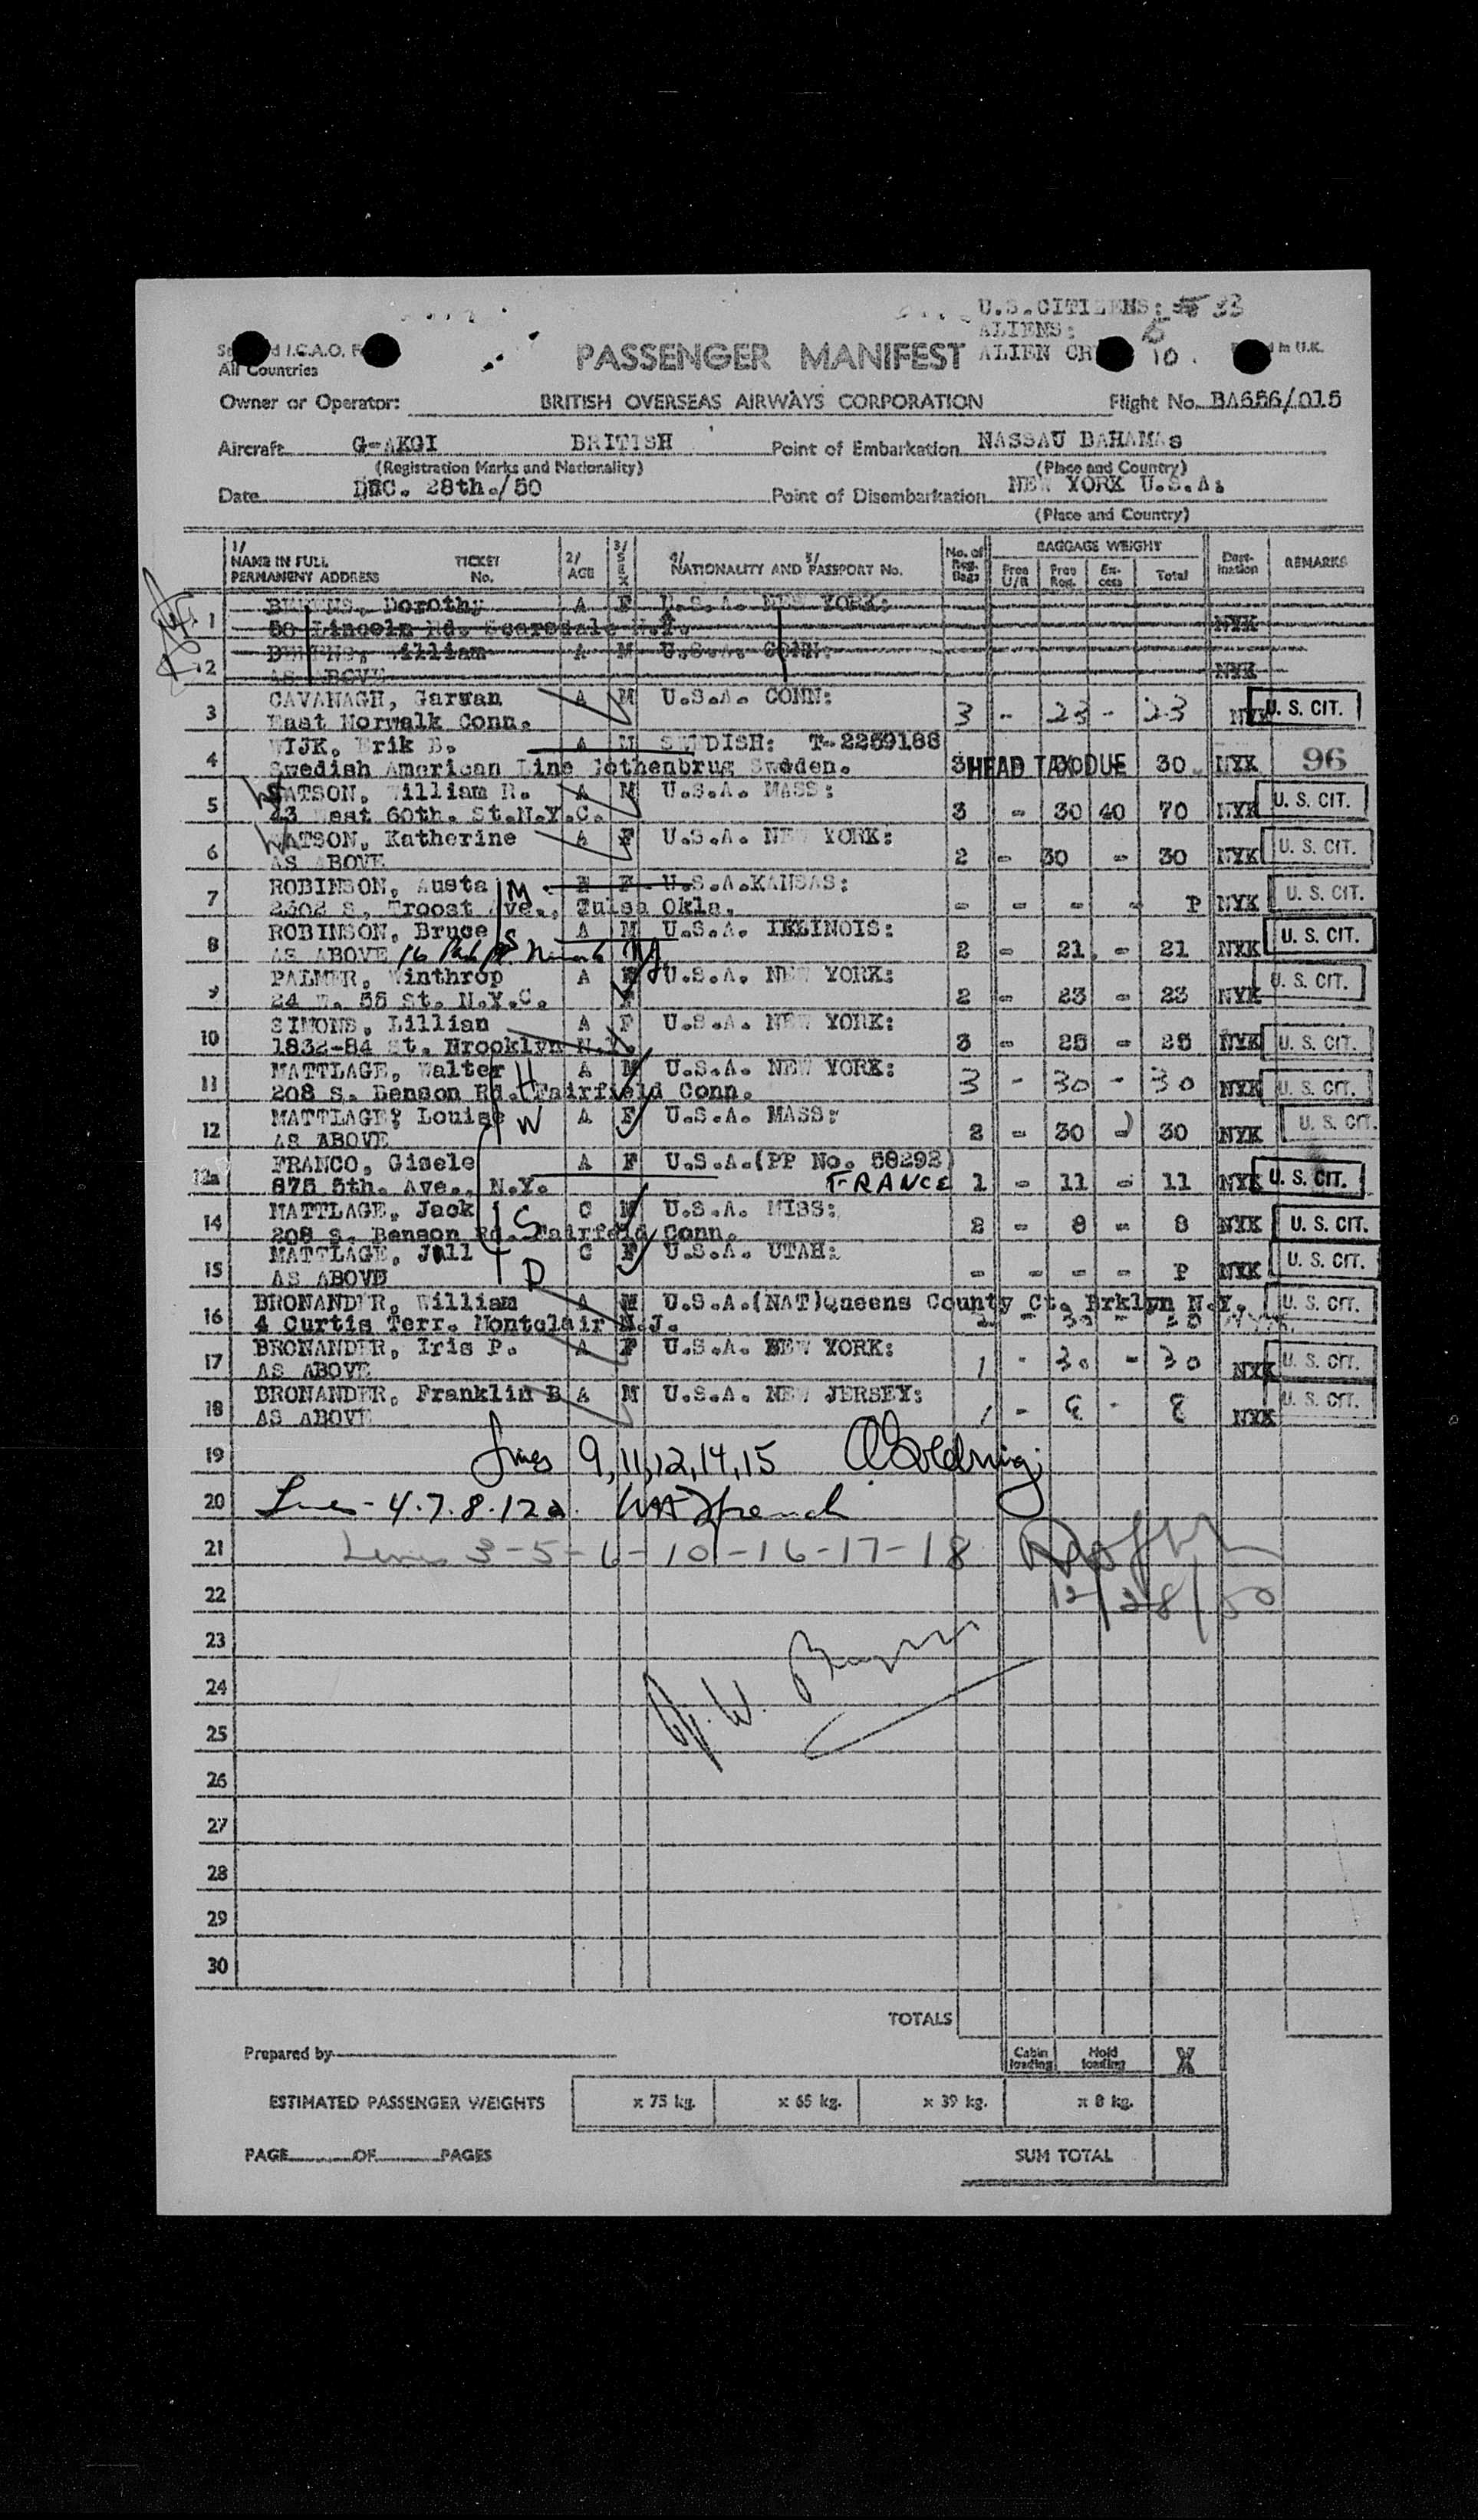 U.S.CITIZENS: 33
ALIENS: 6
All Countries
PASSENGER MANIFEST
10
in U.K.
Owner or Operator: BRITISH OVERSEAS AIRWAYS CORPORATION Flight No. BA656/015
Aircraft G-AKGI BRITISH Point of Embarkation NASSAU BAHAMAS
(Registration Marks and Nationality) (Place and Country)
Date DEC. 28th./50 Point of Disembarkation NEW YORK U.S.A.
(Place and Country)
1/ NAME IN FULL PERMANENT ADDRESS TICKET No. 2/ AGE 3/ SEX 4/ NATIONALITY AND 5/ PASSPORT No. No. of Reg. Bags BAGGAGE WEIGHT Free U/R Free Reg. Excess Total Destination REMARKS
1 Dorothy A F U.S.A. NEW YORK:
50 Lincoln Rd. Scarsdale N.Y. NYK
2 William A M U.S.A. CONN:
AS ABOVE NYK
3 CAVANAGH, Garwan A M U.S.A. CONN:
East Norwalk Conn. 3 - 23 - 23 NYK U. S. CIT.
4 WIJK, Erik B. A M SWEDISH: T-2259186
Swedish American Line Gothenbrug Sweden. 3 HEAD TAX DUE 30 NYK 96
5 WATSON, William R. A M U.S.A. MASS:
43 West 60th. St.N.Y.C. 3 - 30 40 70 NYK U. S. CIT.
6 WATSON, Katherine A F U.S.A. NEW YORK:
AS ABOVE 2 - 30 - 30 NYK U. S. CIT.
7 ROBINSON, Austa M F U.S.A.KANSAS:
2302 S. Troost Ave., Tulsa Okla. - - - - P NYK U. S. CIT.
8 ROBINSON, Bruce S A M U.S.A. ILLINOIS:
AS ABOVE 16 2 - 21 - 21 NYK U. S. CIT.
9 PALMER, Winthrop A U.S.A. NEW YORK:
24 W. 55 St. N.Y.C. F 2 - 23 - 23 NYK U. S. CIT.
10 SIMONS, Lillian A F U.S.A. NEW YORK:
1832-84 St. Brooklyn N.Y. 3 - 25 - 25 NYK U. S. CIT.
11 MATTLAGE, Walter H A M U.S.A. NEW YORK:
208 S. Benson Rd. Fairfield Conn. 3 - 30 - 30 NYK U. S. CIT.
12 MATTLAGE, Louise W A F U.S.A. MASS:
AS ABOVE 2 - 30 - 30 NYK U. S. CIT.
12a FRANCO, Gisele A F U.S.A.(PP No. 58292)
875 5th. Ave., N.Y. FRANCE 1 - 11 - 11 NYK U. S. CIT.
14 MATTLAGE, Jack S C M U.S.A. MISS:
208 S. Benson Rd. Fairfeld Conn. 2 - 8 - 8 NYK U. S. CIT.
15 MATTLAGE, Jill D C F U.S.A. UTAH:
AS ABOVE - - - - P NYK U. S. CIT.
16 BRONANDER, William A M U.S.A.(NAT)Queens County Ct. Brklyn N.Y. U. S. CIT.
4 Curtis Terr. Montclair N.J.
17 BRONANDER, Iris P. A F U.S.A. NEW YORK:
AS ABOVE 1 - 30 - 30 NYK U. S. CIT.
18 BRONANDER, Franklin B A M U.S.A. NEW JERSEY:
AS ABOVE 1 - 8 - 8 NYK U. S. CIT.
19 Lines 9,11,12,14,15
20 Lines - 4.7.8.12a.
21 Lines 3-5-6-10-16-17-18
22 12/28/50
23
24
25
26
27
28
29
30
TOTALS
Prepared by Cabin loading Hold loading X
ESTIMATED PASSENGER WEIGHTS x 75 kg. x 65 kg. x 39 kg. x 8 kg.
PAGE OF PAGES SUM TOTAL